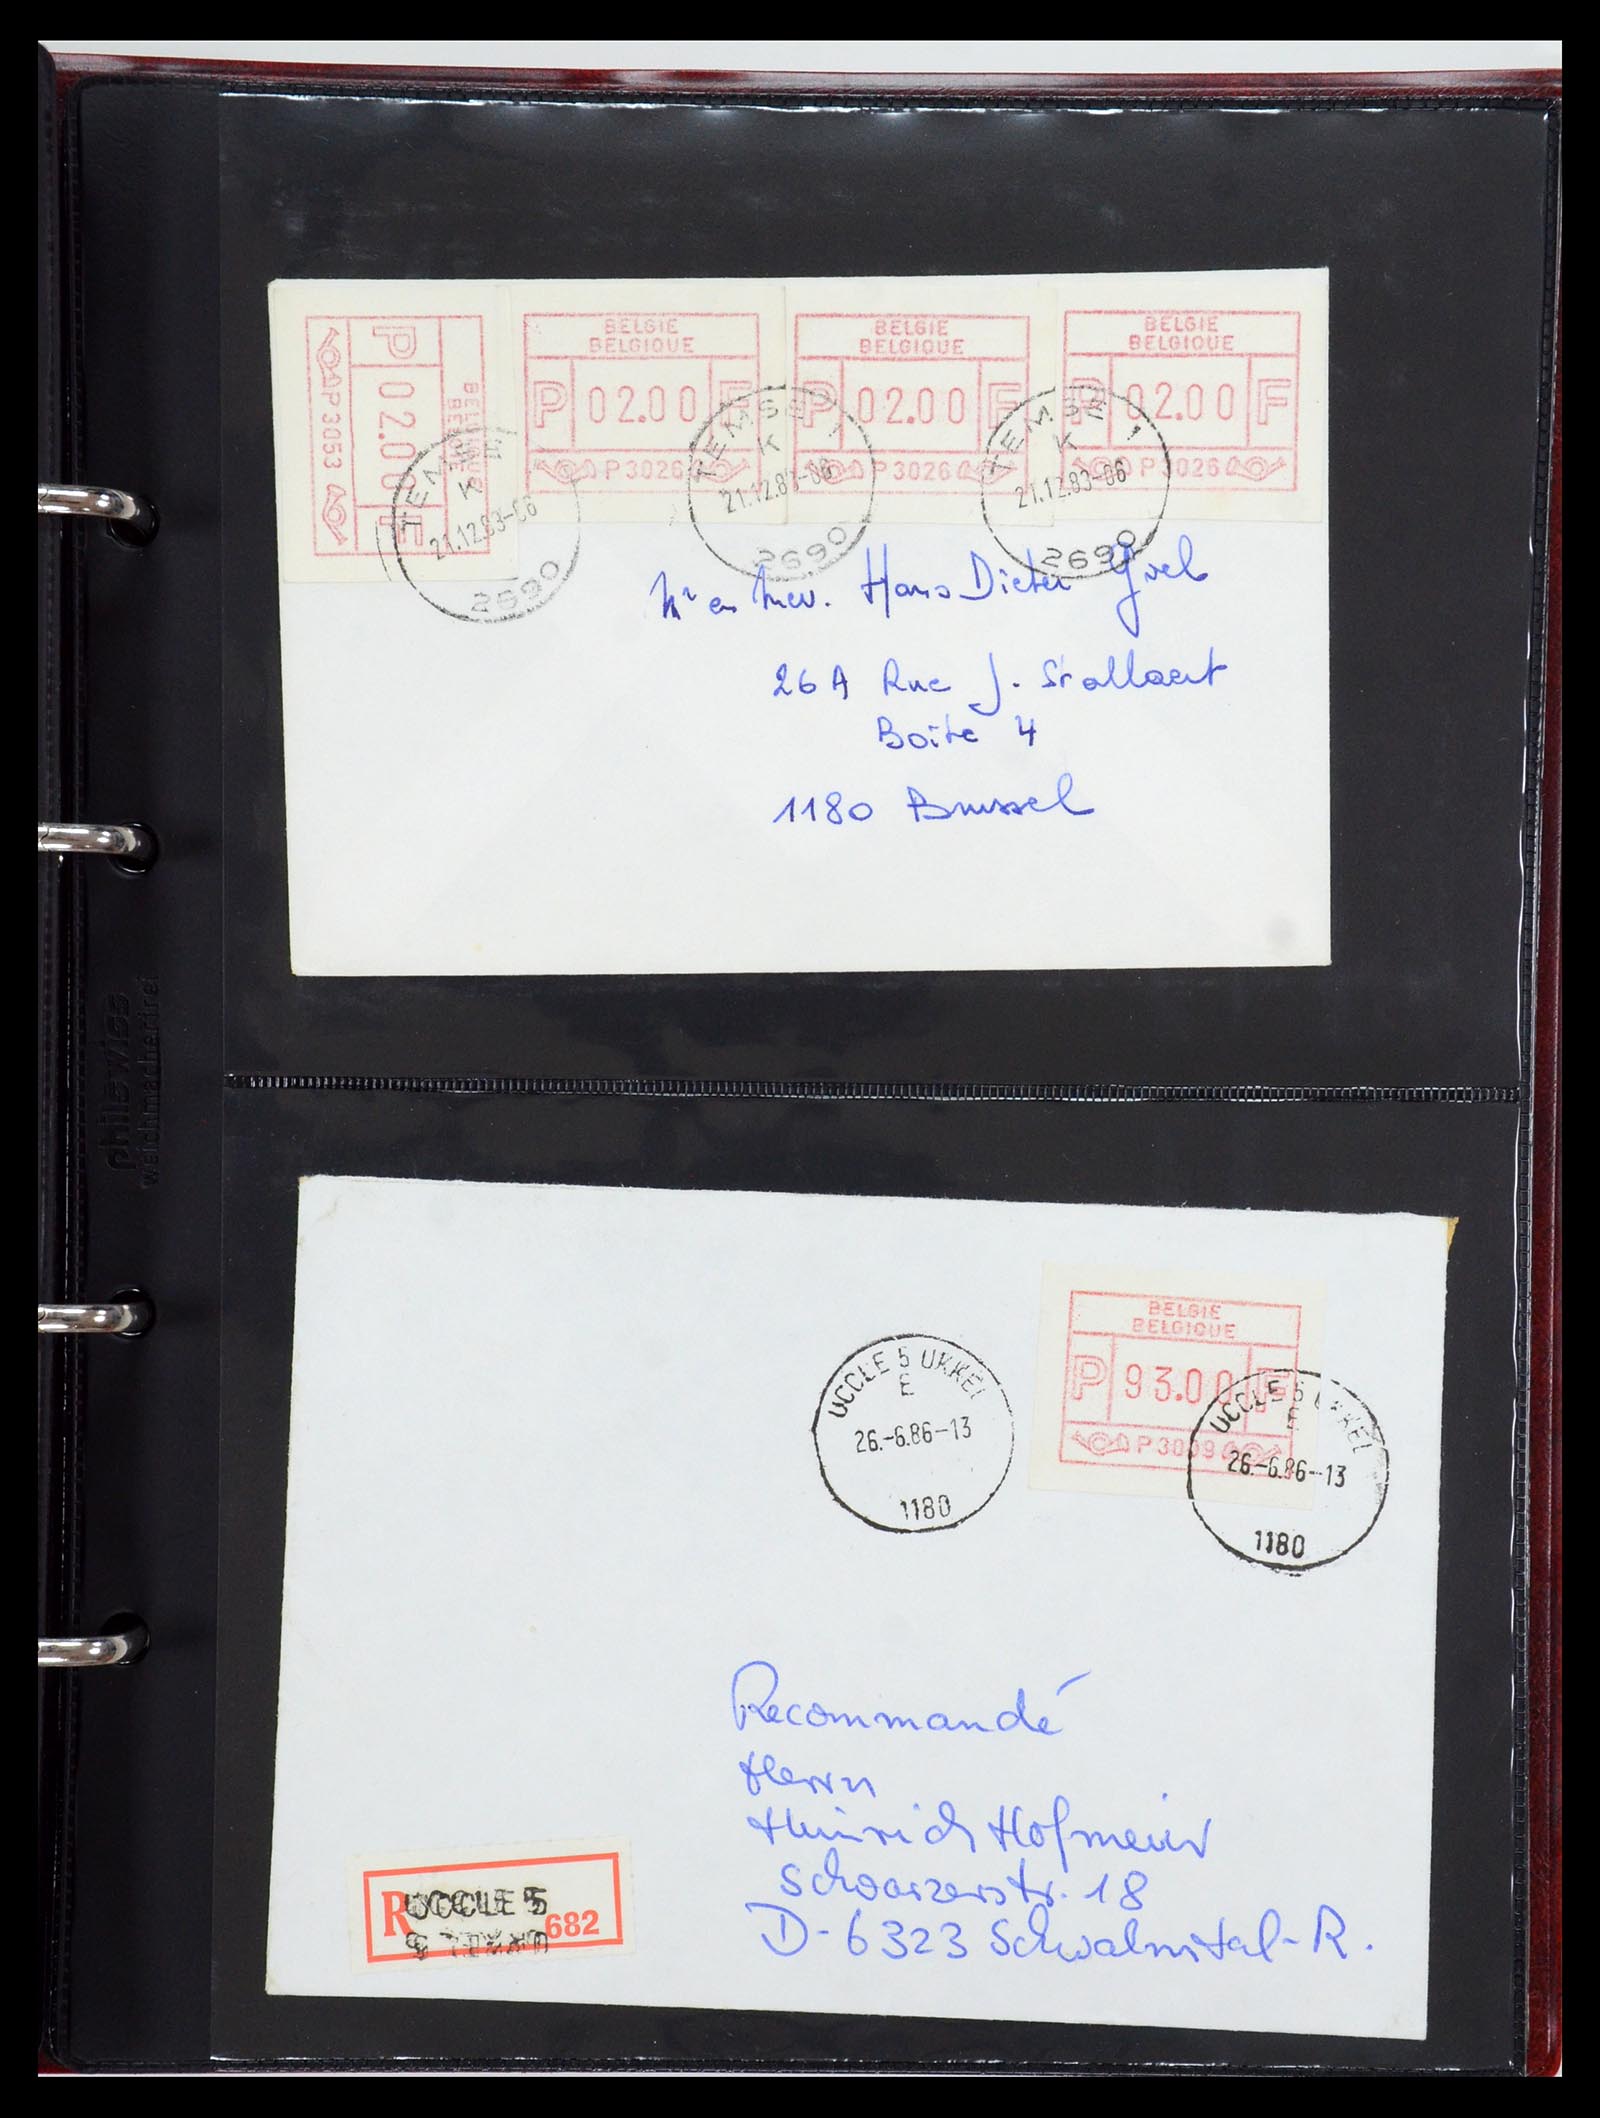 BELGIQUE
BELGIE
P 02.00 F
P3053
BELGIE
BELGIQUE
P 02.00 F
P3026
BELGIE
BELGIQUE
P 02.00 F
P3026
BELGIE
BELGIQUE
P 02.00 F
P3026
K
21.12.83-06
2690
TEMSE 1
K
21.12.83-06
2690
TEMSE 1
K
21.12.83-06
2690
Mr en Mev. Hans Dieter
26A Rue J. Stallaert
Boîte 4
1180 Brussel
philswiss
weichmacherfrei
BELGIE
BELGIQUE
P 93.00 F
P3009
UCCLE 5 UKKEL
E
26.-6.86-13
1180
UCCLE 5 UKKEL
E
26.-6.86-13
1180
Recommandé
Herrn
Heinrich Hofmeier
Schwarzerstr. 18
D-6323 Schwalmtal-R.
R UCCLE 5
682